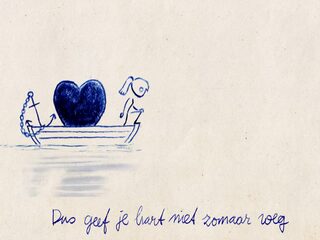 Dus geef je hart niet zomaar weg